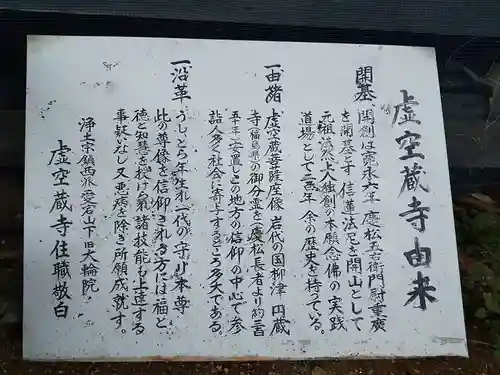 虚空蔵寺由来
開基 開創は寛永六年 慶松五右衛門尉重廣
を開基とす 信道法尼を開山として
元祖法然上人独創の本願念佛の実践
道場として三百年余の歴史を持っている。
一由緒 虚空蔵菩薩座像 岩代の国柳津 円蔵
寺(福島県)の御分霊を慶松長者により約三百
五十年 安置しこの地方の信仰の中心で参
詣人多く社会に寄与するところ多大である。
一沿革 うし、とら年生れ一代の守り本尊
此の尊像を信仰される方には福と
徳と知慧を授け氣諸技能も上達する
事疑いなし又悪病を除き所願成就す。
浄土宗鎮西派 愛宕山下旧大輪院
虚空蔵寺住職敬白